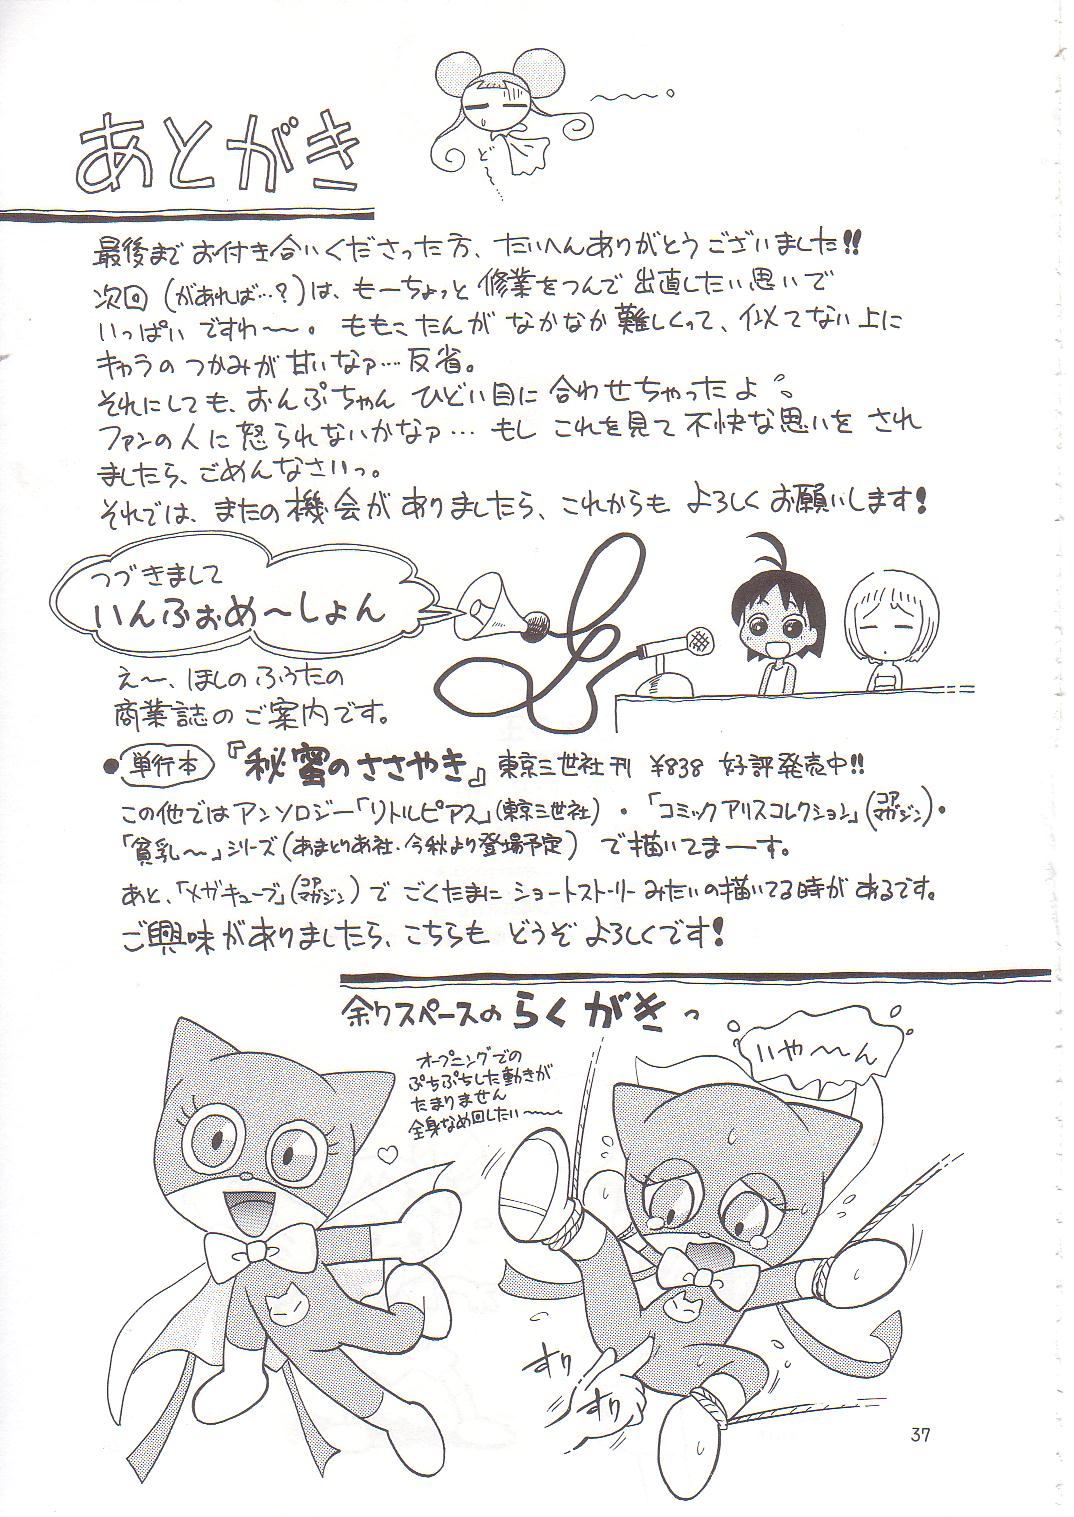 あとがき
最後までお付き合いくださった方、たいへんありがとうございました!!
次回(があれば…?)は、もーちょっと修業をつんで出直したい思いで
いっぱいですわ〜。ももこたんがなかなか難しくって、似てない上に
キャラのつかみが甘いなァ…反省。
それにしても、おんぷちゃんひどい目に合わせちゃったよ
ファンの人に怒られないかなァ…もしこれを見て不快な思いをされ
ましたら、ごめんなさいっ。
それでは、またの機会がありましたら、これからもよろしくお願いします!
つづきまして
いんふぉめ〜しょん
え〜、ほしのふうたの
商業誌のご案内です。
●単行本『秘蜜のささやき』東京三世社刊 ¥838 好評発売中!!
この他ではアンソロジー「リトルピアス」(東京三世社)・「コミックアリスコレクション」(コアマガジン)・
「貧乳〜」シリーズ(あまとりあ社・今秋より登場予定)で描いてまーす。
あと、「メガキューブ」(コアマガジン)でごくたまにショートストーリーみたいの描いてる時があるです。
ご興味がありましたら、こちらもどうぞよろしくです!
余りスペースのらくがきっ
オープニングでの
ぷちぷちした動きが
たまりません
全身なめ回したい〜
いや〜ん
すり
すり
37